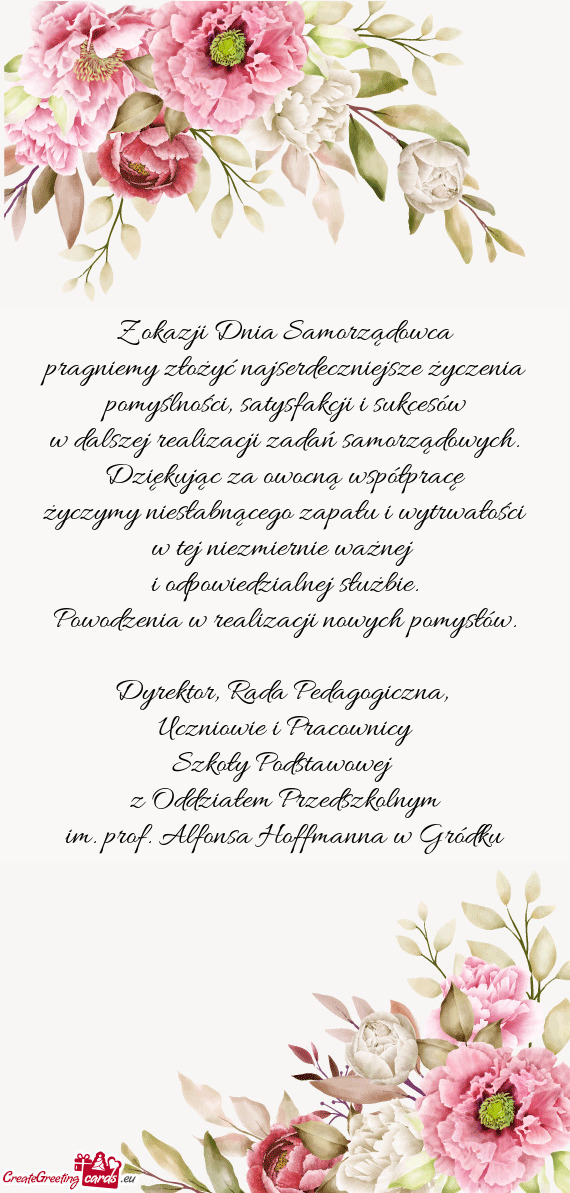 Z okazji Dnia Samorządowca
pragniemy złożyć najserdeczniejsze życzenia
pomyślności, satysfakcji i sukcesów
w dalszej realizacji zadań samorządowych.
Dziękując za owocną współpracę
życzymy niesłabnącego zapału i wytrwałości
w tej niezmiernie ważnej
i odpowiedzialnej służbie.
Powodzenia w realizacji nowych pomysłów.
Dyrektor, Rada Pedagogiczna,
Uczniowie i Pracownicy
Szkoły Podstawowej
z Oddziałem Przedszkolnym
im. prof. Alfonsa Hoffmanna w Gródku
CreateGreeting cards .eu